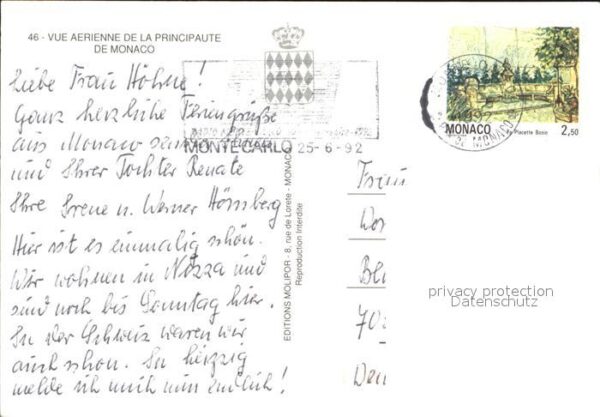 46 - VUE AERIENNE DE LA PRINCIPAUTE
DE MONACO
Liebe Frau Höhne!
Ganz herzliche Feriengrüße
aus Monaco senden Ihnen
und Ihrer Tochter Renate
Ihre Irene u. Werner
Hier ist es einmalig schön.
Wir wohnen in Nizza und
sind noch bis Sonntag hier.
In der Schweiz waren wir
auch schon. In
melde ich mich nun endlich!
MONTE CARLO 25-6-92
EDITIONS MOLIPOR - 8, rue de Lorete - MONACO
Reproduction Interdite
MONACO
Placette Bosio
2,50
Frau
privacy protection
Datenschutz